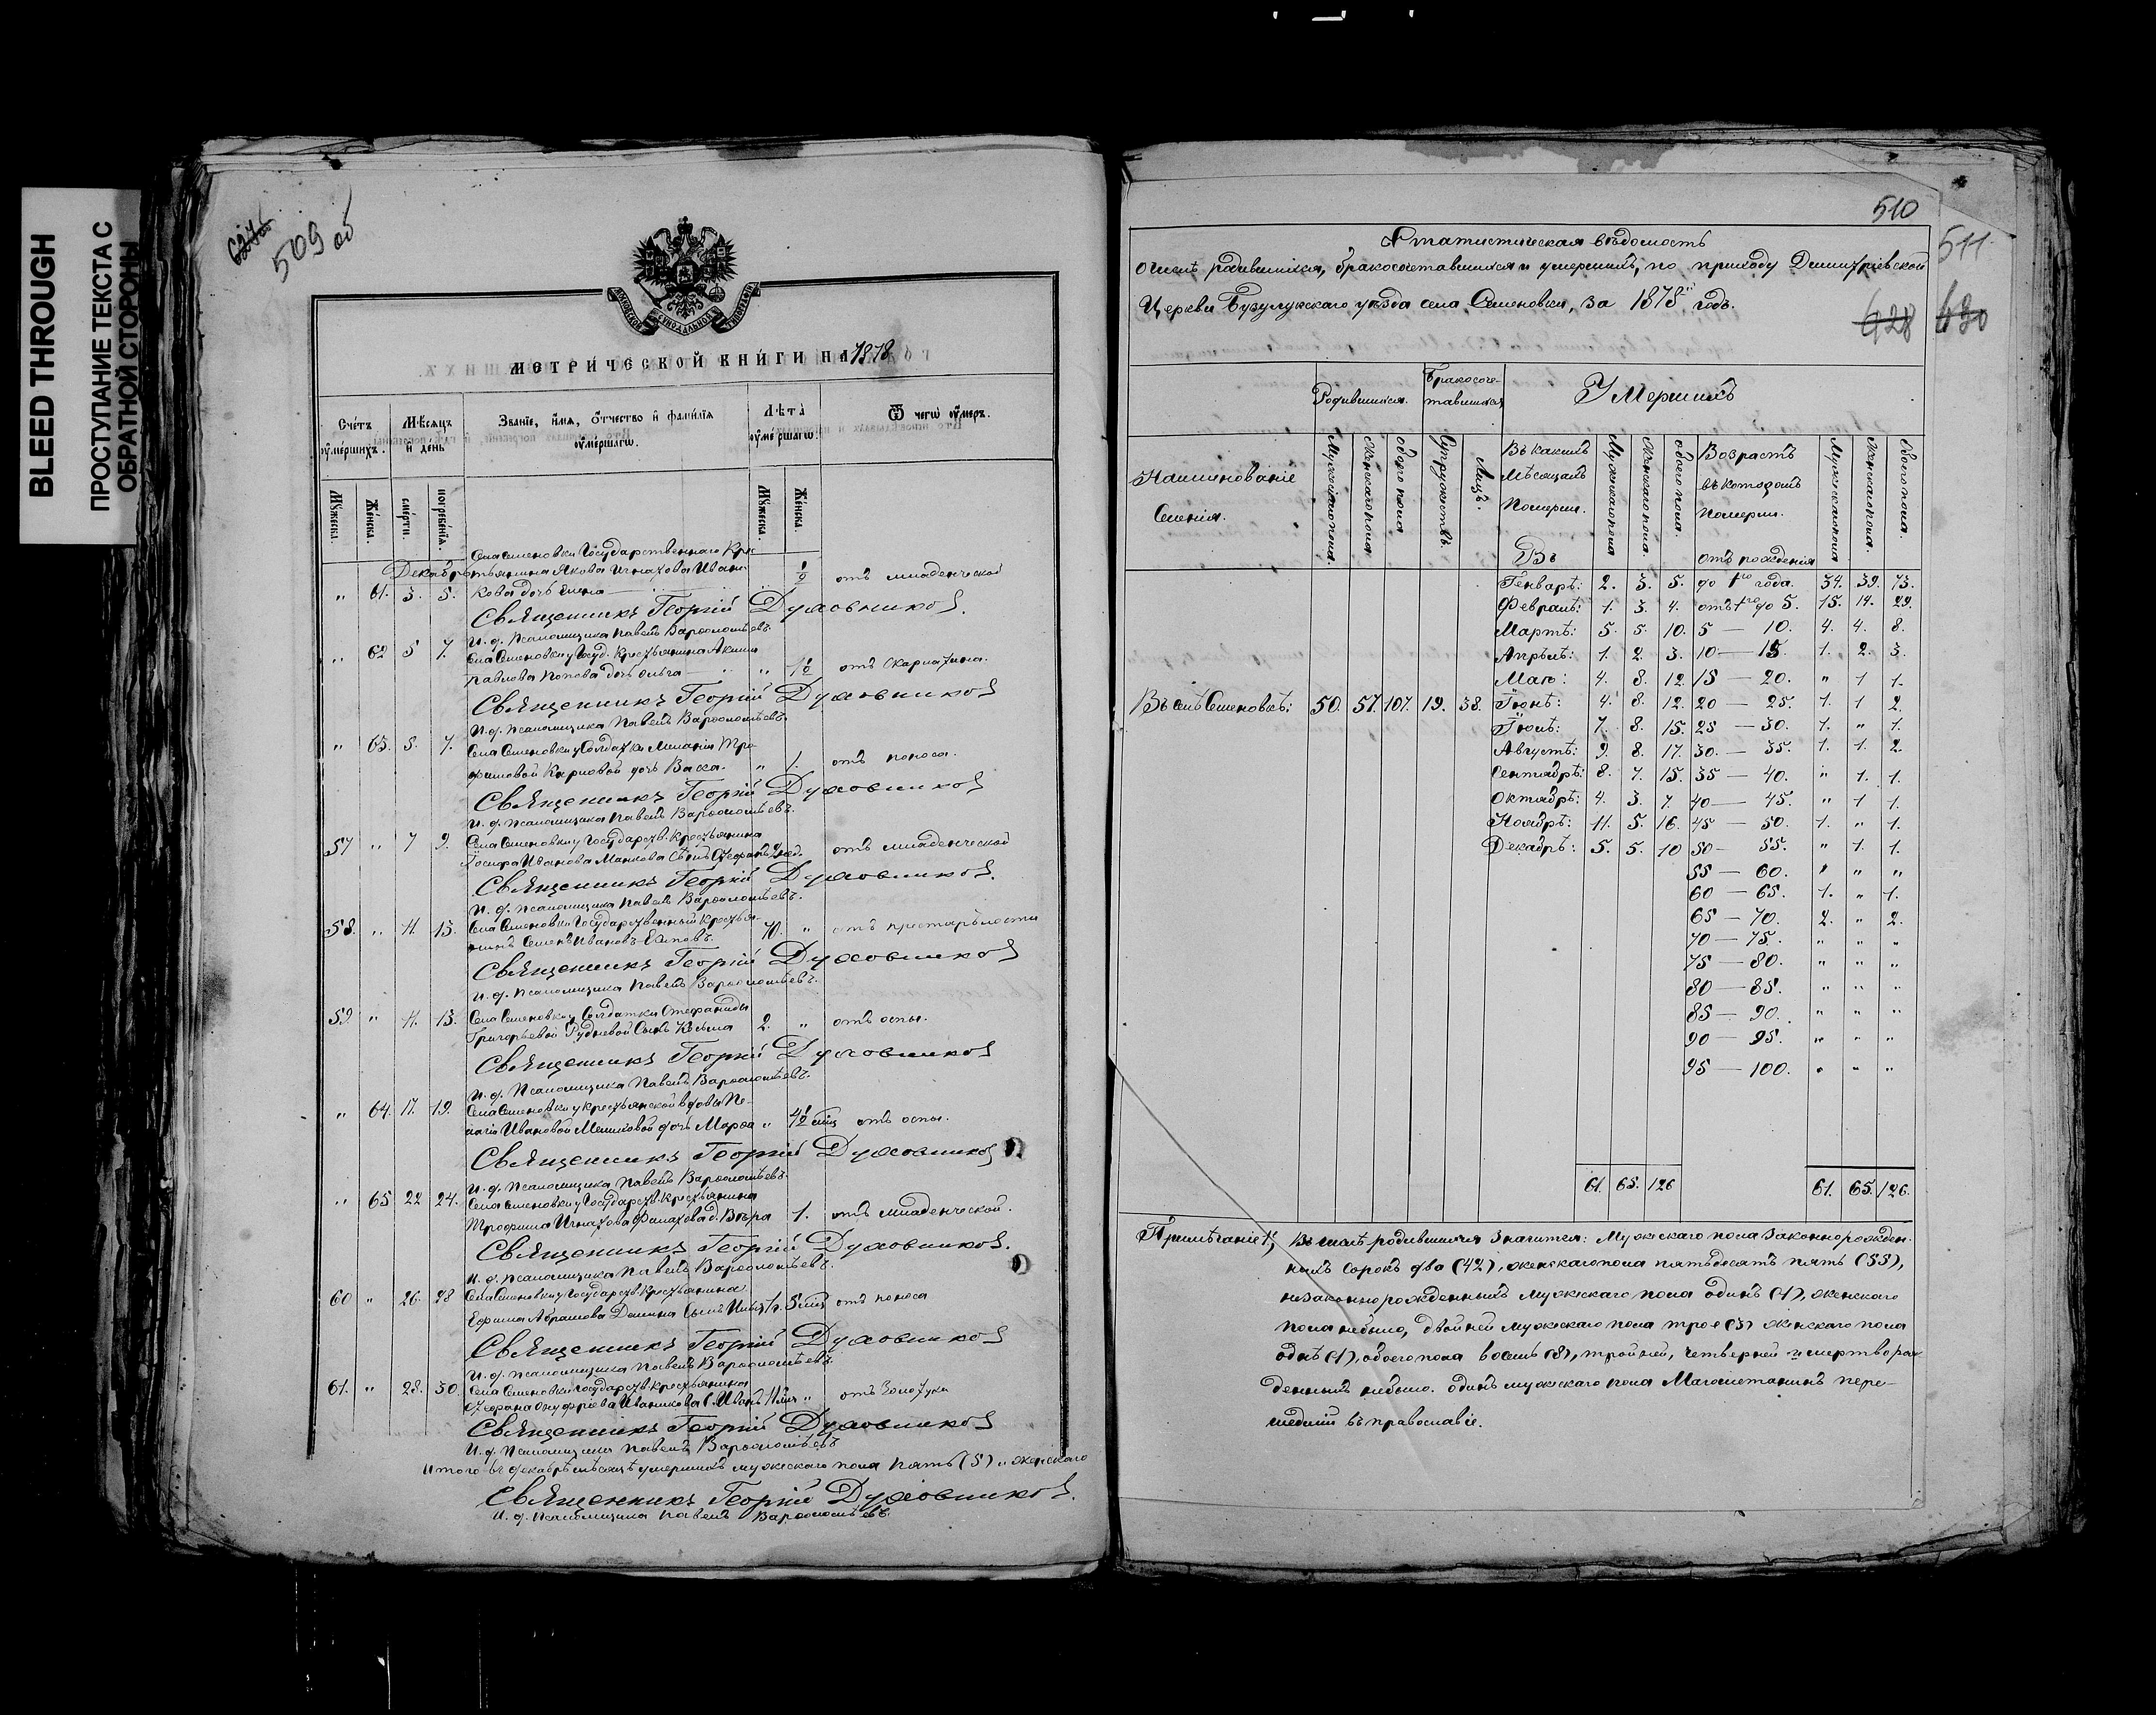 BLEED THROUGH
ПРОСТУПАНИЕ ТЕКСТА С
ОБРАТНОЙ СТОРОНЫ
509 об
МЕТРИ́ЧЕСКОЙ КНИ́ГИ НА 1878
Сче́тъ ѹме́ршихъ.
Мѣ́сяцъ и де́нь
Зва́ніе, и́мя, ѻ́тчество и фами́лія ѹме́ршагѡ.
Лѣта̀ ѹме́ршагѡ.
Ѿ чегѡ ѹ́меръ.
Мꙋ́жеска. Же́нска. сме́рти. погребе́нія. Мꙋ́жеска. Же́нска.
Села Семеновки Государственнаго Кре-
Декабрь стьянина Якова Игнатова Ивани-
„ 61. 3. 5. кова дочь Елена „ ½ отъ младенческой
Священникъ Георгій Духовниковъ.
И. д. Псаломщика Павелъ Варѳоломѣевъ.
Села Семеновки у Госуд. Крестьянина
„ 62 5 7. Павлова Попова дочь Ольга „ 1½ отъ скарлатина.
Священникъ Георгій Духовниковъ
И. д. Псаломщика Павелъ Варѳоломѣевъ.
„ 63. 5. 7. Села Семеновки у Солдатки Меланіи Тро-
фимовой Карповой дочь Васса. „ 1. отъ поноса.
Священникъ Георгій Духовниковъ
И. д. Псаломщика Павелъ Варѳоломѣевъ.
57 „ 7 9. Села Семеновки у Государств. Крестьянина
Іосифа Иванова сынъ Стефанъ отъ младенческой
Священникъ Георгій Духовниковъ.
И. д. Псаломщика Павелъ Варѳоломѣевъ.
58. „ 11. 13. Села Семеновки Государственный Крестья-
нинъ Семенъ Ивановъ 70. „ отъ престарѣлости
Священникъ Георгій Духовниковъ
И. д. Псаломщика Павелъ Варѳоломѣевъ.
59. „ 11. 13. Села Семеновки у Солдатки Стефаниды
Григорьевой Рудневой сынъ Козьма 2. „ отъ оспы.
Священникъ Георгій Духовниковъ
И. д. Псаломщика Павелъ Варѳоломѣевъ.
„ 64. 17. 19. Села Семеновки у крестьянской вдовы Пе-
лагіи Ивановой дочь Марѳа „ 4½ мѣц отъ оспы.
Священникъ Георгій Духовниковъ
И. д. Псаломщика Павелъ Варѳоломѣевъ.
„ 65 22 24. Села Семеновки у Государств. Крестьянина
Трофима Игнатова д. Вѣра 1. отъ младенческой.
Священникъ Георгій Духовниковъ.
И. д. Псаломщика Павелъ Варѳоломѣевъ.
60 „ 26. 28 Села Семеновки у Государств. Крестьянина
Ефима Абрамова Демина сынъ 5 мѣц отъ поноса
Священникъ Георгій Духовниковъ
И. д. Псаломщика Павелъ Варѳоломѣевъ.
61. „ 28. 30. Села Семеновки Государств. Крестьянина
Стефана Онуфріева Иваникова с. Иванъ „ отъ золотухи
Священникъ Георгій Духовниковъ
И. д. Псаломщика Павелъ Варѳоломѣевъ
Итого въ декабрѣ мѣсяцѣ умершихъ мужескаго пола пять (5) и женскаго
Священникъ Георгій Духовниковъ.
И. д. Псаломщика Павелъ Варѳоломѣевъ.
510
511
628 630
Статистическая вѣдомость
о числѣ родившихся, бракосочетавшихся и умершихъ, по приходу Димитріевской
Церкви Бузулукскаго уѣзда села Семеновки, за 1878й годъ.
Родившихся. Бракосоче-тавшихся Умершихъ
Наименованіе Селенія. Мужескаго пола. Женскаго пола. Обоего пола. Супружествъ. Лицъ. Въ какихъ мѣсяцахъ померли. Мужескаго пола Женскаго пола. Обоего пола. Возрастъ въ которомъ померли. Мужескаго пола Женскаго пола. Обоего пола.
Въ отъ рожденія
Генварѣ: 2. 3. 5. до 1го года. 34. 39. 73.
Февралѣ: 1. 3. 4. отъ 1го до 5. 15. 14. 29.
Мартѣ: 5. 5. 10. 5 — 10. 4. 4. 8.
Апрѣлѣ: 1. 2. 3. 10 — 15. 1. 2. 3.
Маѣ: 4. 8. 12. 15 — 20. „ 1 1.
Въ селѣ Семеновкѣ: 50. 57. 107. 19. 38. Іюнѣ: 4. 8. 12. 20 — 25. 1. 1 2.
Іюлѣ: 7. 8. 15. 25 — 30. 1. „ 1.
Августѣ: 9. 8. 17. 30. — 35. 1. 1. 2.
Сентябрѣ: 8. 7. 15. 35 — 40. „ 1. 1.
Октябрѣ: 4. 3. 7. 40 — 45. „ 1 1.
Ноябрѣ: 11. 5. 16. 45 — 50. 1. „ 1.
Декабрѣ: 5. 5. 10 50 — 55. „ 1. 1.
55 — 60. „ „ „
60 — 65. 1. „ 1.
65 — 70. 2. „ 2.
70 — 75. „ „ „
75 — 80. „ „ „
80 — 85. „ „ „
85 — 90. „ „ „
90 — 95. „ „ „
95 — 100. „ „ „
61. 65. 126 61. 65. 126.
Примѣчаніе: Въ числѣ родившихся значится: Мужескаго пола законнорожден-
ныхъ сорокъ два (42), женскаго пола пятьдесятъ пять (55),
незаконнорожденныхъ мужескаго пола одинъ (1), женскаго
пола небыло, двойней мужескаго пола трое (3) женскаго пола
однѣ (1), обоего пола восемь (8), тройней, четверней и мертворож-
денныхъ небыло. Одинъ мужескаго пола Магометанинъ пере-
шедшій въ православіе.